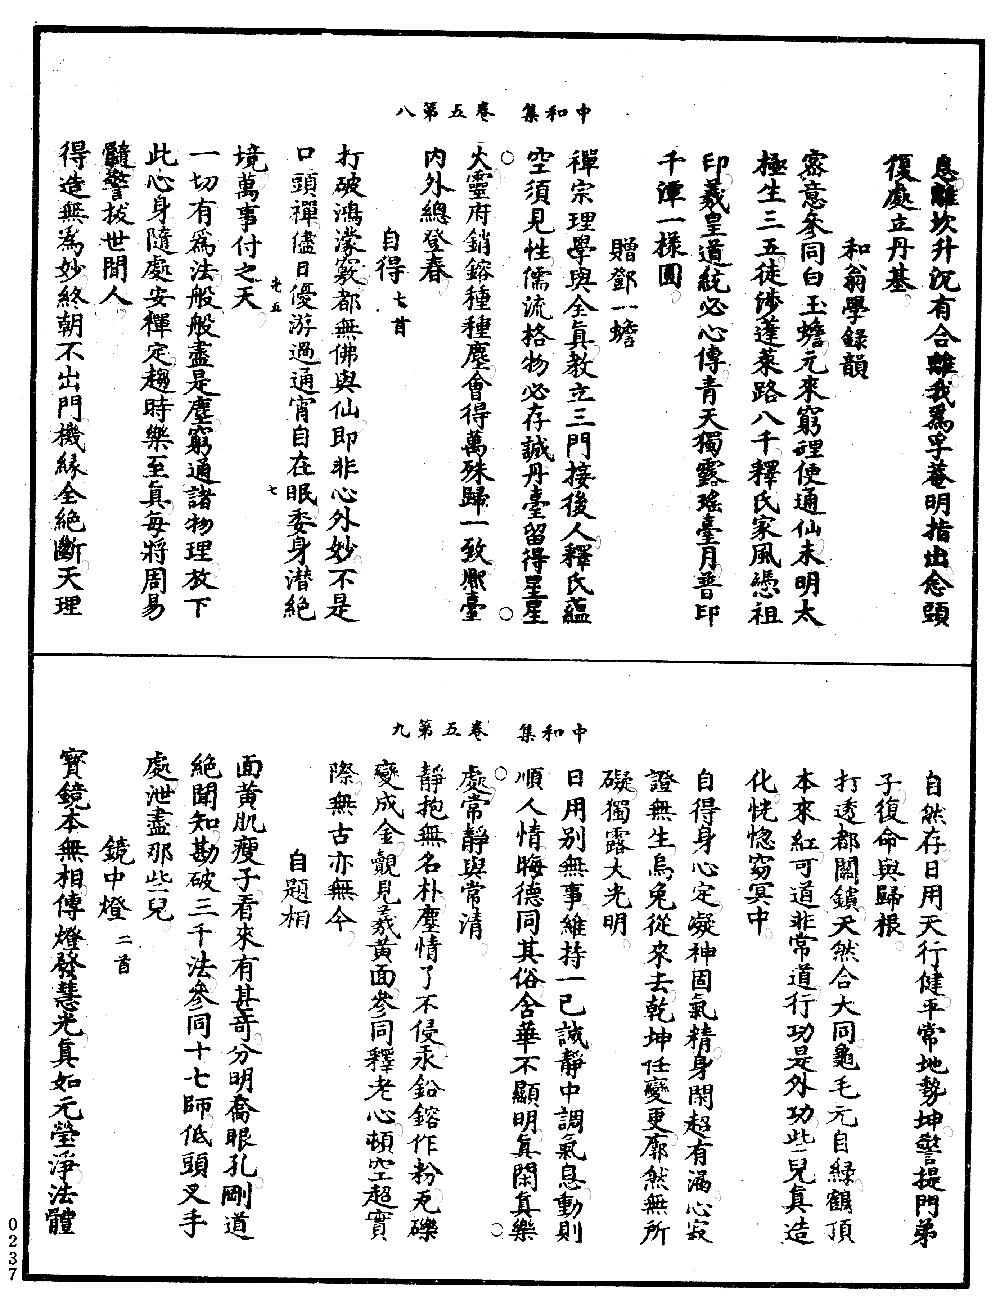 中和集　卷五第八
息離坎升沉有合離我爲孚菴明指出念頭
復處立丹基
和翁學錄韻
密意參同白玉蟾元來窮理便通仙未明太
極生三五徒涉蓬萊路八千釋氏家風憑祖
印羲皇道統必心傳青天獨露瑤臺月普印
千潭一樣圓
贈鄧一蟾
禪宗理學與全眞教立三門接後人釋氏蘊
空須見性儒流格物必存誠丹臺留得星星
火靈府銷鎔種種塵會得萬殊歸一致熙臺
內外總登春
自得七首
打破鴻濛竅都無佛與仙即非心外妙不是
口頭禪儘日優游過通宵自在眠委身潛絕
境萬事付之天
一切有爲法般般盡是塵窮通諸物理放下
此心身隨處安禪定趨時樂至眞每將周易
髓警拔世間人
得造無爲妙終朝不出門機緣全絕斷天理
光五　七
中和集　卷五第九
自然存日用天行健平常地勢坤警提門弟
子復命與歸根
打透都關鎖天然合大同龜毛元自綠鶴頂
本來紅可道非常道行功是外功些兒眞造
化恍惚窈冥中
自得身心定凝神固氣精身閑超有漏心寂
證無生烏兔從來去乾坤任變更廓然無所
礙獨露大光明
日用别無事維持一已誠靜中調氣息動則
順人情晦德同其俗含華不顯明眞閑眞樂
處常靜與常清
靜抱無名朴塵情了不侵汞鉛鎔作粉瓦礫
變成金覿見羲黃面參同釋老心頓空超實
際無古亦無今
自題相
面黃肌瘦子看來有甚奇分明喬眼孔剛道
絕聞知勘破三千法參同十七師低頭叉手
處泄盡那些兒
鏡中燈二首
寶鏡本無相傳燈發慧光眞如元瑩淨法體
0237